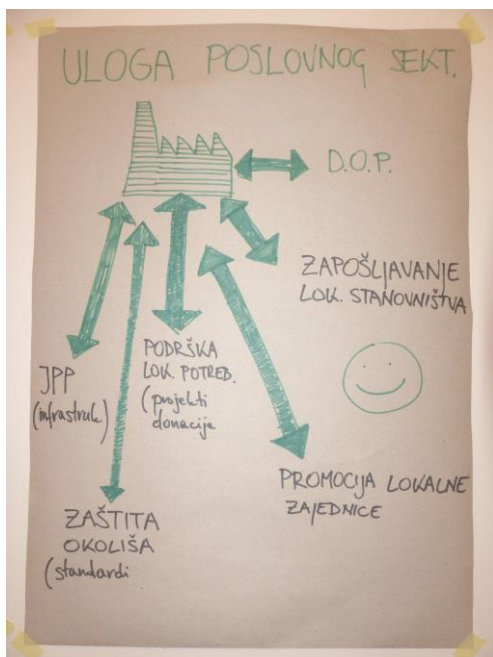 ULOGA POSLOVNOG SEKT.
D.O.P.
ZAPOŠLJAVANJE
LOK. STANOVNIŠTVA
PODRŠKA
LOK. POTREB.
(projekti
donacije
JPP
(infrastruk)
PROMOCIJA LOKALNE
ZAJEDNICE
ZAŠTITA
OKOLIŠA
(standardi